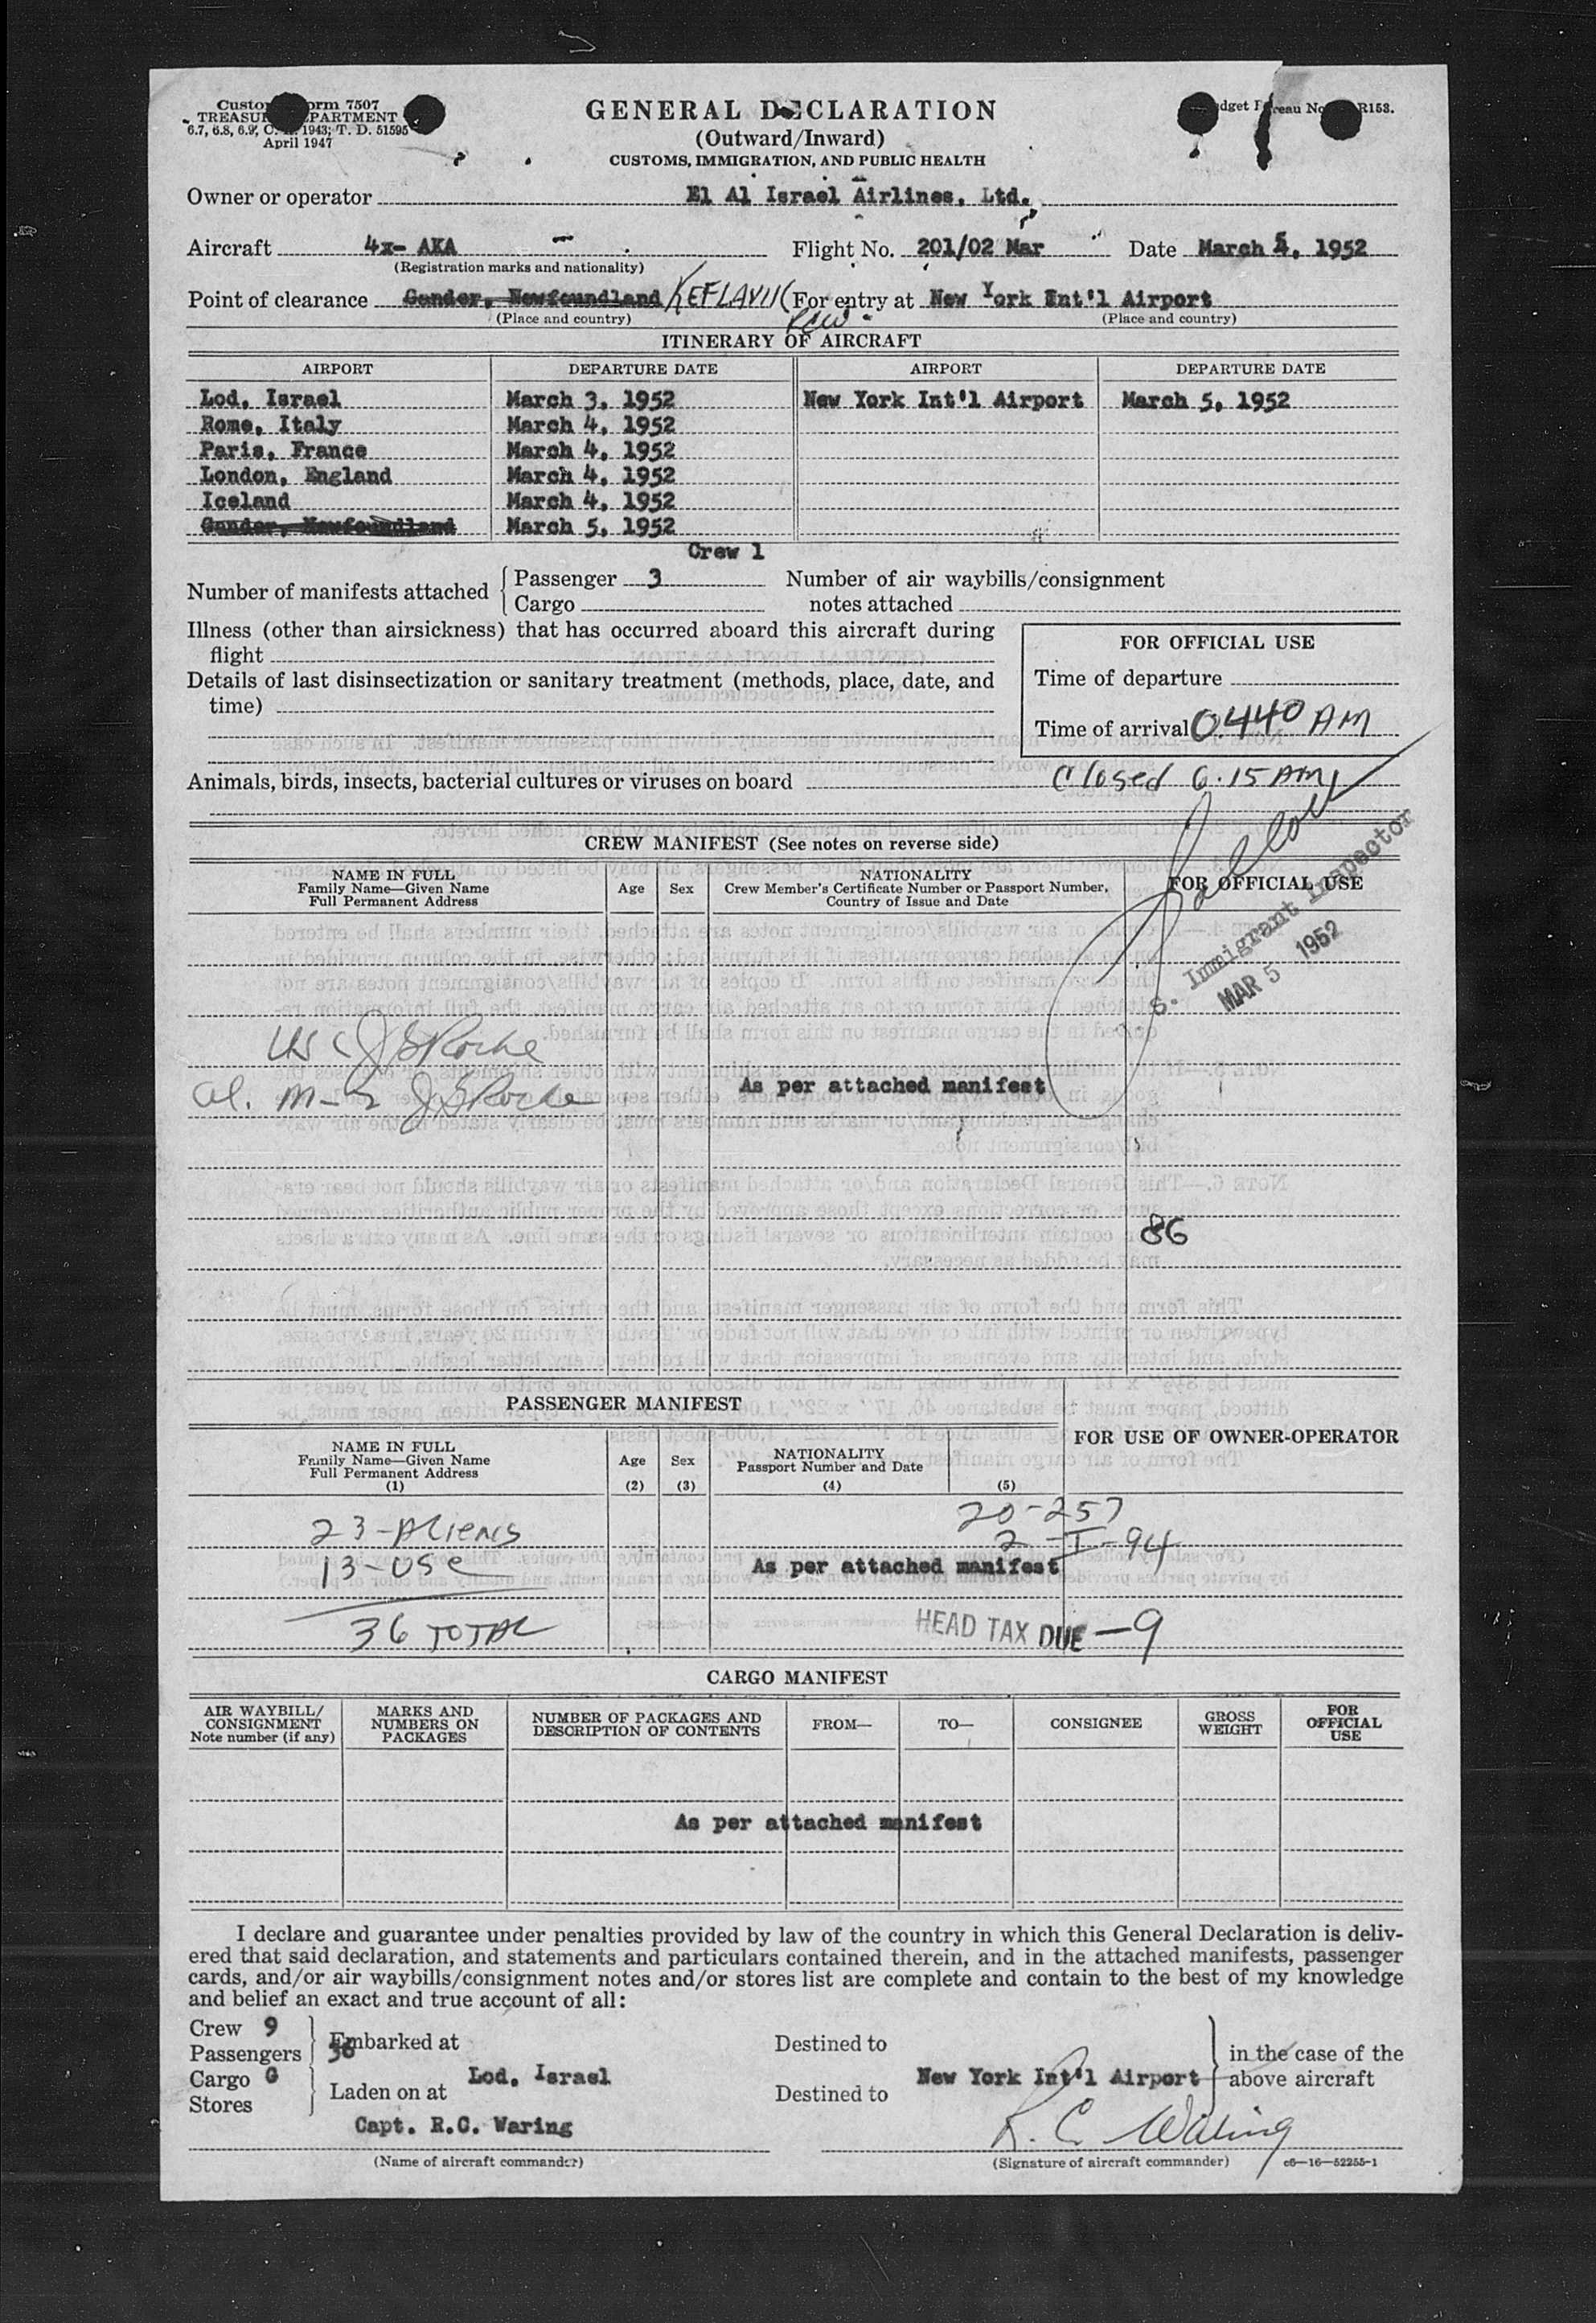 Customs Form 7507
TREASURY DEPARTMENT
6.7, 6.8, 6.9, 1943; T. D. 51595
April 1947
GENERAL DECLARATION
(Outward/Inward)
CUSTOMS, IMMIGRATION, AND PUBLIC HEALTH
Budget Bureau No. R153.
Owner or operator El Al Israel Airlines, Ltd.
Aircraft 4x- AKA Flight No. 201/02 Mar Date March 5, 1952
(Registration marks and nationality)
Point of clearance Gander, Newfoundland KEFLAVIK For entry at New York Int'l Airport
(Place and country) RCW (Place and country)
ITINERARY OF AIRCRAFT
AIRPORT DEPARTURE DATE AIRPORT DEPARTURE DATE
Lod, Israel March 3, 1952 New York Int'l Airport March 5, 1952
Rome, Italy March 4, 1952
Paris, France March 4, 1952
London, England March 4, 1952
Iceland March 4, 1952
Gander, Newfoundland March 5, 1952
Crew 1
Number of manifests attached Passenger 3 Number of air waybills/consignment
Cargo notes attached
Illness (other than airsickness) that has occurred aboard this aircraft during
flight
FOR OFFICIAL USE
Details of last disinsectization or sanitary treatment (methods, place, date, and
time)
Time of departure
Time of arrival 0440 AM
Animals, birds, insects, bacterial cultures or viruses on board Closed 6.15 AM
CREW MANIFEST (See notes on reverse side)
NAME IN FULL
Family Name—Given Name
Full Permanent Address
Age Sex
NATIONALITY
Crew Member's Certificate Number or Passport Number,
Country of Issue and Date
FOR OFFICIAL USE
S. Immigrant Inspector
MAR 5 1952
As per attached manifest
86
PASSENGER MANIFEST
FOR USE OF OWNER-OPERATOR
NAME IN FULL
Family Name—Given Name
Full Permanent Address
(1)
Age
(2)
Sex
(3)
NATIONALITY
Passport Number and Date
(4) (5)
20-257
23-Aliens 2-I-94
13-USC As per attached manifest
36 TOTAL HEAD TAX DUE - 9
CARGO MANIFEST
AIR WAYBILL/
CONSIGNMENT
Note number (if any)
MARKS AND
NUMBERS ON
PACKAGES
NUMBER OF PACKAGES AND
DESCRIPTION OF CONTENTS
FROM— TO— CONSIGNEE
GROSS
WEIGHT
FOR
OFFICIAL
USE
As per attached manifest
I declare and guarantee under penalties provided by law of the country in which this General Declaration is deliv-
ered that said declaration, and statements and particulars contained therein, and in the attached manifests, passenger
cards, and/or air waybills/consignment notes and/or stores list are complete and contain to the best of my knowledge
and belief an exact and true account of all:
Crew 9
Passengers 36 Embarked at Destined to in the case of the
Cargo G Lod, Israel New York Int'l Airport above aircraft
Stores Laden on at Destined to
Capt. R.C. Waring R. C. Waring
(Name of aircraft commander) (Signature of aircraft commander) c6—16—52255-1